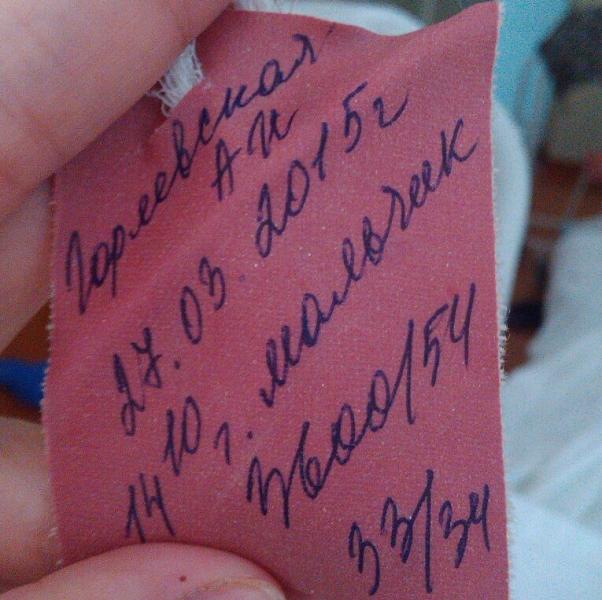 Горлевская
А И
27.03.2015г
14 10 г. мальчик
3600/54
33/34